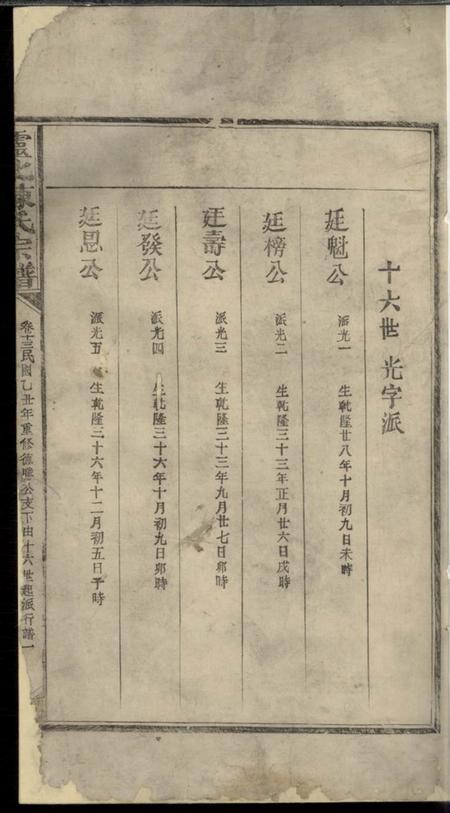 十六世 光字派
廷魁公 派光一 生乾隆廿八年十月初九日未時
廷榜公 派光二 生乾隆三十三年正月廿六日戌時
廷壽公 派光三 生乾隆三十三年九月廿七日卯時
廷發公 派光四 生乾隆三十六年十月初九日卯時
廷恩公 派光五 生乾隆三十六年十二月初五日子時
陳氏宗譜 卷十三民國乙丑年重修德公支下由十六世起派行譜一